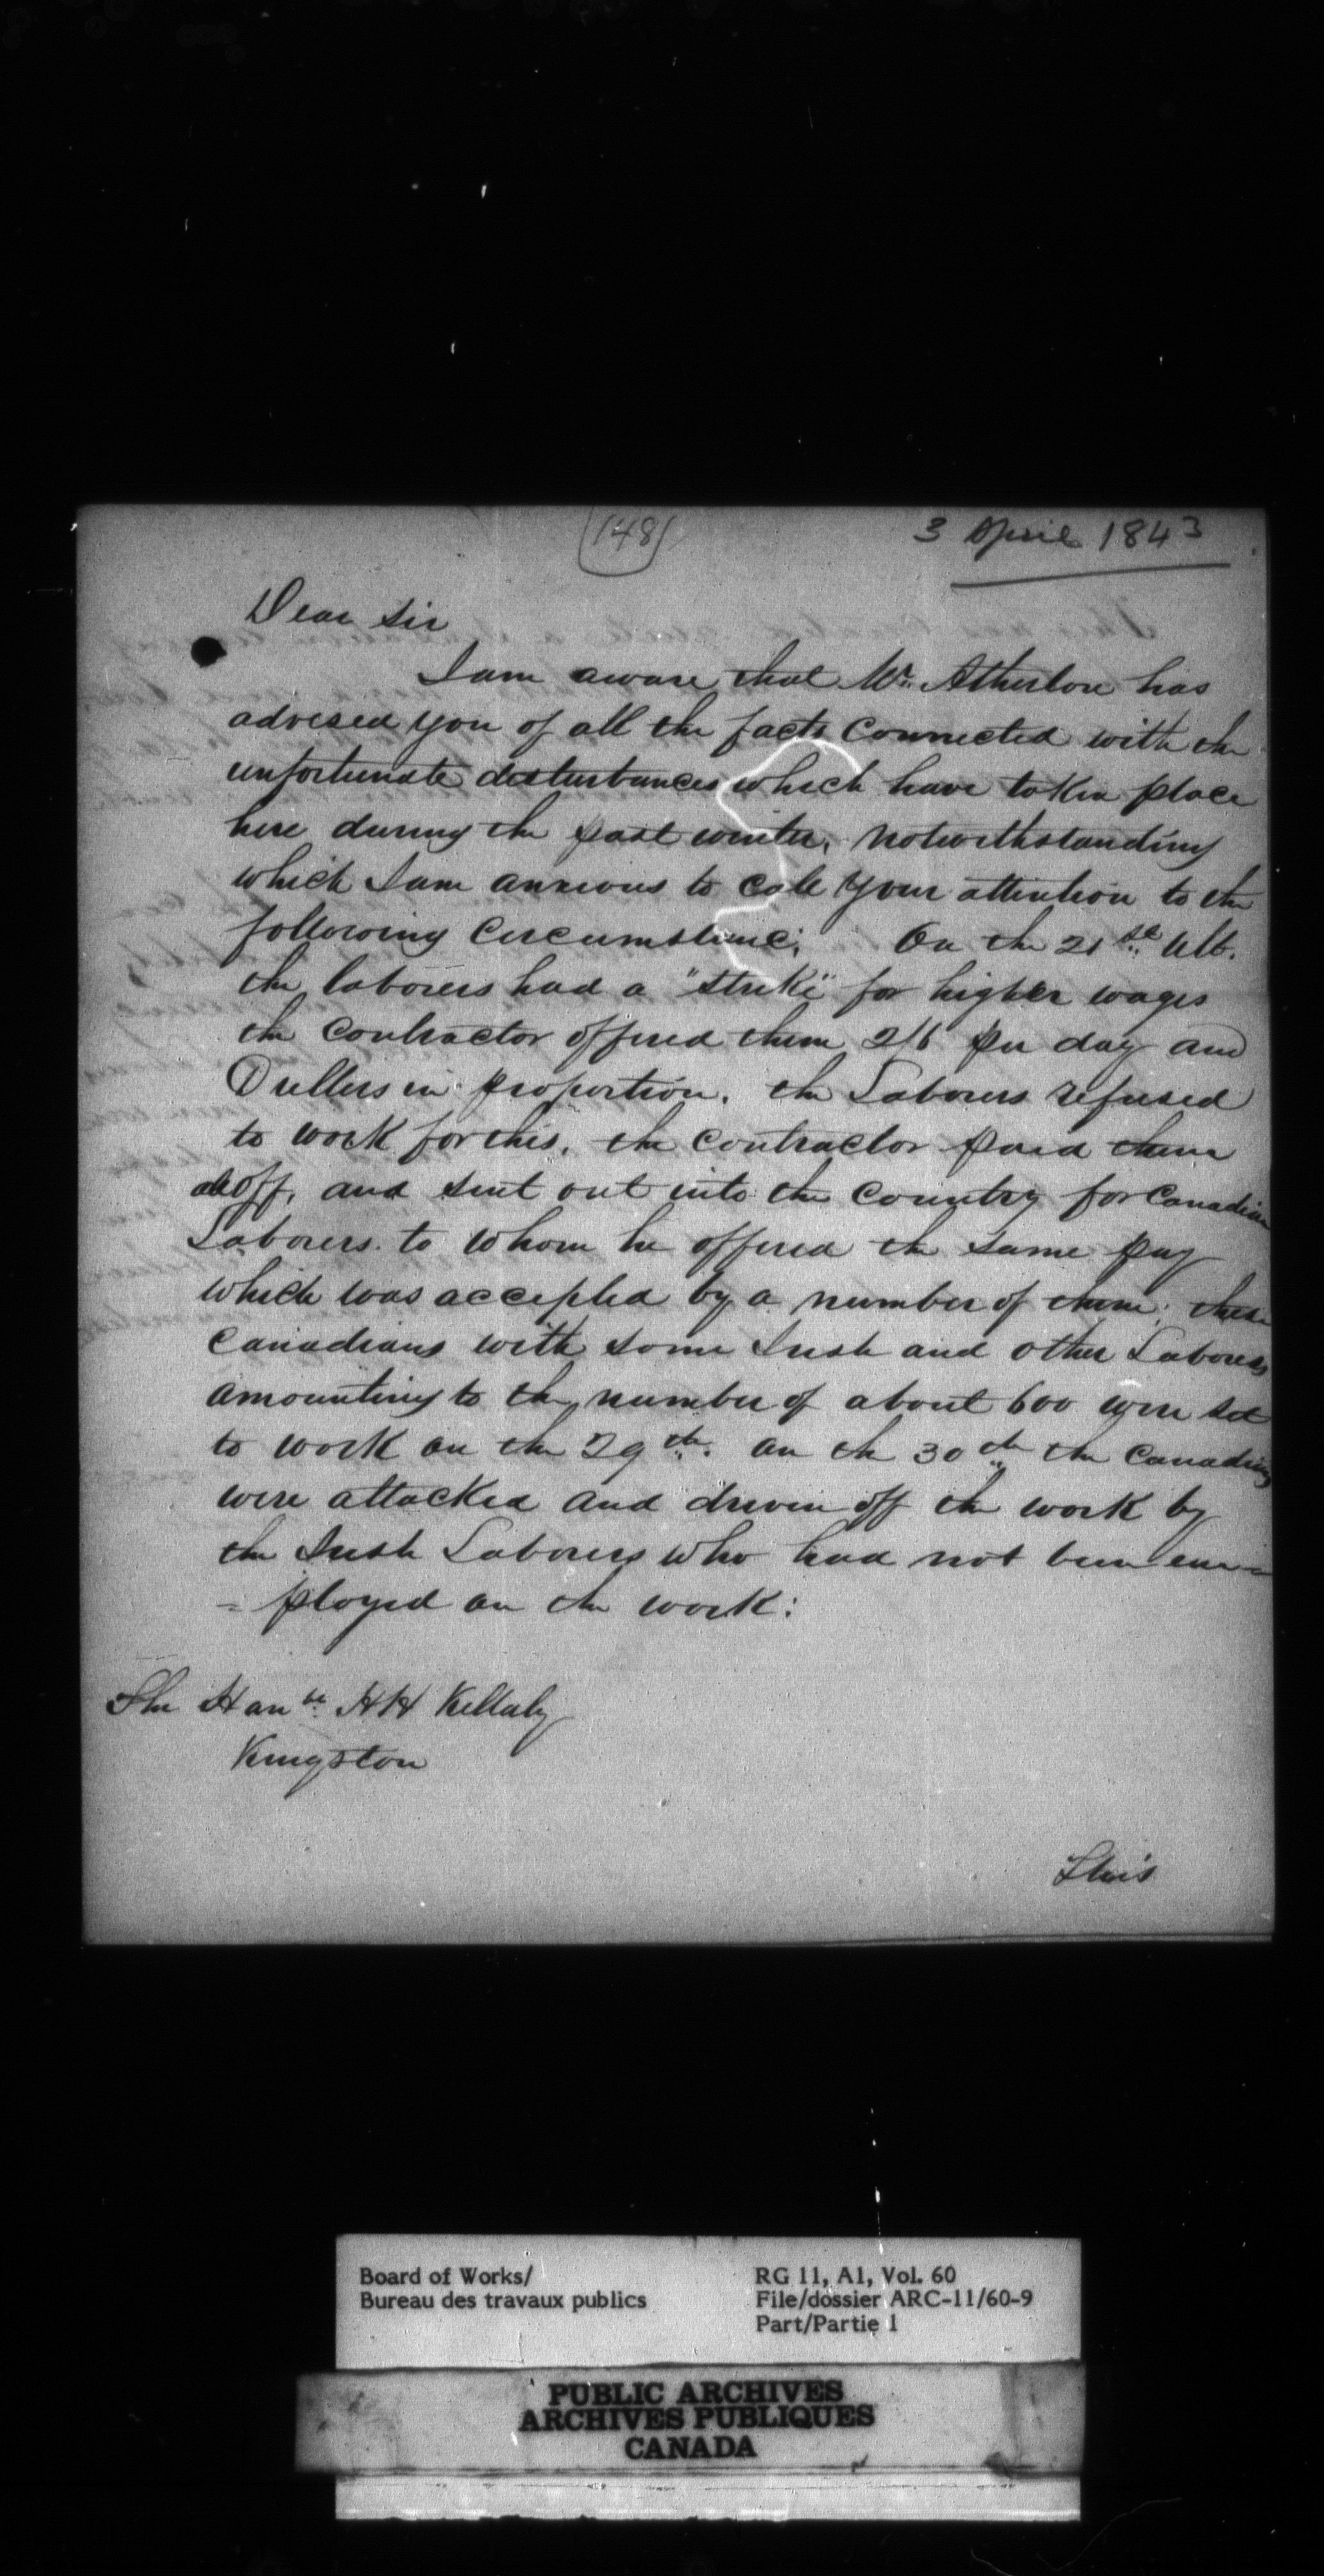 (148)
3 April 1843
Dear Sir
I am aware that Mr. Atherton has
advised you of all the facts connected with the
unfortunate disturbances which have taken place
here during the past winter, notwithstanding
which I am anxious to call your attention to the
following circumstance; On the 21st Ult.
the laborers had a "strike" for higher wages
the Contractor offered them 2/6 per day and
Drillers in proportion. the Laborers refused
to work for this. the Contractor paid them
all off, and sent out into the Country for Canadian
Laborers to whom he offered the same pay
which was accepted by a number of them; these
Canadians with some Irish and other Laborers
amounting to the number of about 600 were set
to work on the 29th. on the 30th the Canadians
were attacked and driven off the work by
the Irish Laborers who had not been em=
=ployed on the work:
The Honble. HH Killaly
Kingston
This
Board of Works/
Bureau des travaux publics
RG 11, A1, Vol. 60
File/dossier ARC-11/60-9
Part/Partie 1
PUBLIC ARCHIVES
ARCHIVES PUBLIQUES
CANADA